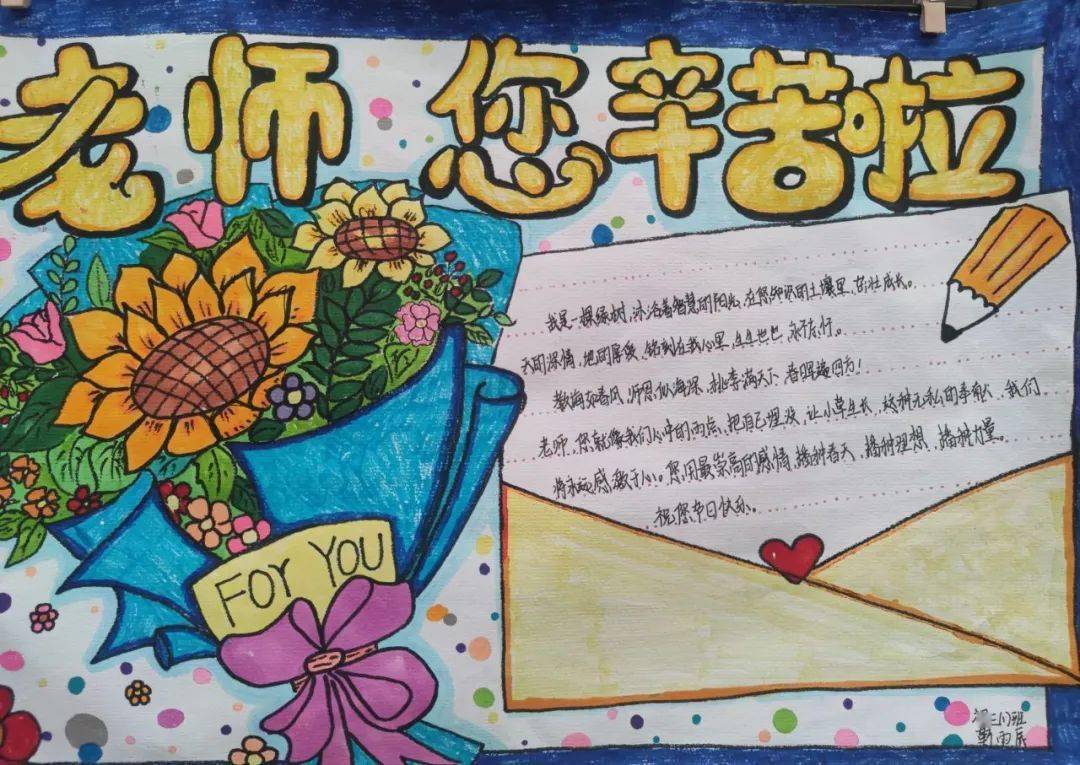 老师 您辛苦啦
我是一棵绿树,沐浴着智慧的阳光,在您知识的土壤里,茁壮成长。
天的深情,地的厚爱,铭刻在我心里,生生世世,永不了。
教诲如春风,师恩似海深,桃李满天下,春晖遍四方!
老师,您就像我们心中的雨点,把自己埋没,让小草生长,这种无私的奉献,我们
将永远感激于心。您用最崇高的感情,播种春天,播种理想,播种力量。
祝您节日快乐。
FOR YOU
三(1)班
雨辰